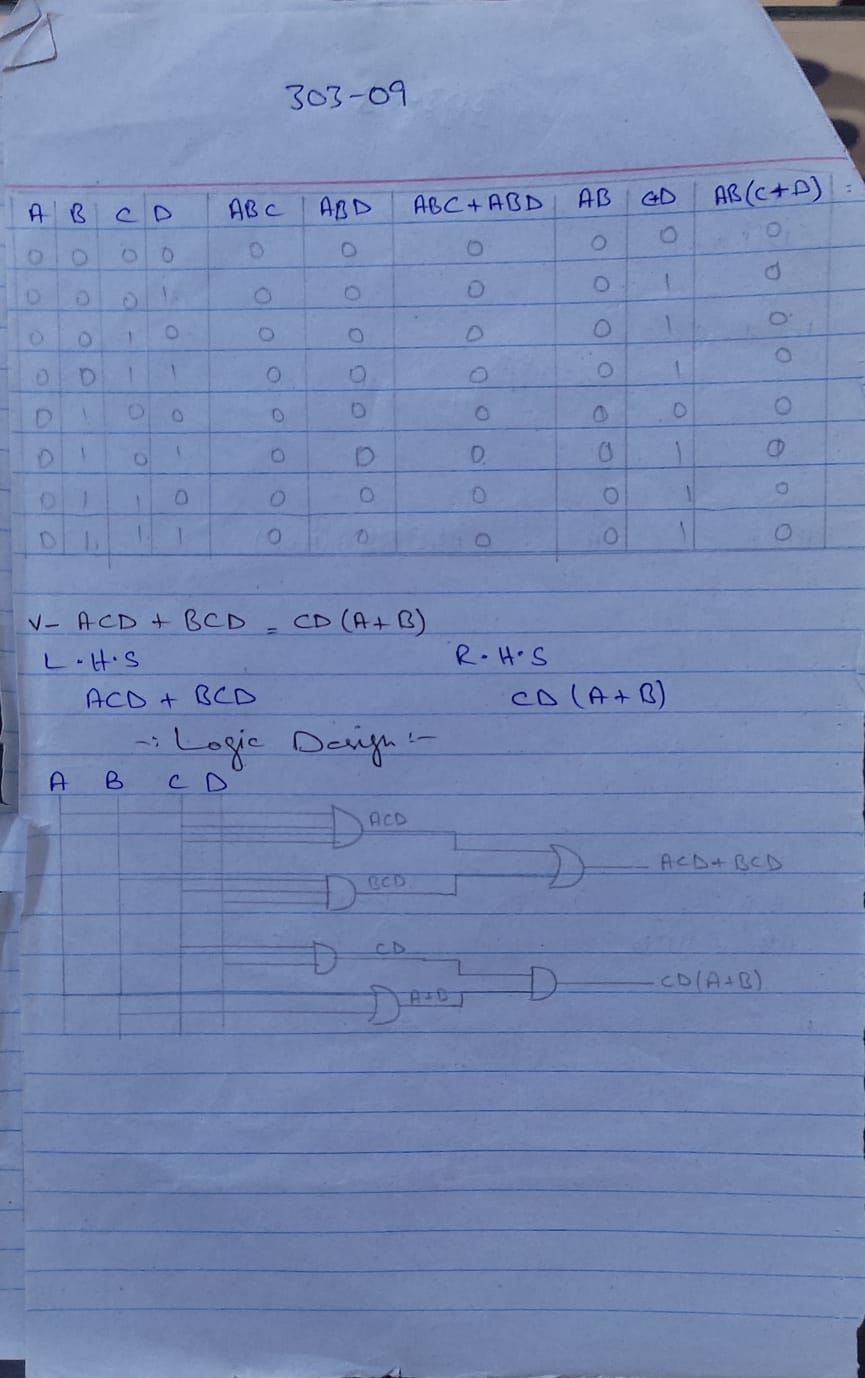 303-09
A B C D ABC ABD ABC+ABD AB C+D AB(C+D) :
0 0 0 0 0 0 0 0 0 0
0 0 0 1 0 0 0 0 1 0
0 0 1 0 0 0 0 0 1 0
0 0 1 1 0 0 0 0 1 0
0 1 0 0 0 0 0 0 0 0
0 1 0 1 0 0 0 0 1 0
0 1 1 0 0 0 0 0 1 0
0 1 1 1 0 0 0 0 1 0
V- ACD + BCD = CD (A+B)
L.H.S R.H.S
ACD + BCD CD (A+B)
-: Logic Design :-
A B C D
ACD
ACD+BCD
BCD
CD
CD(A+B)
A+B